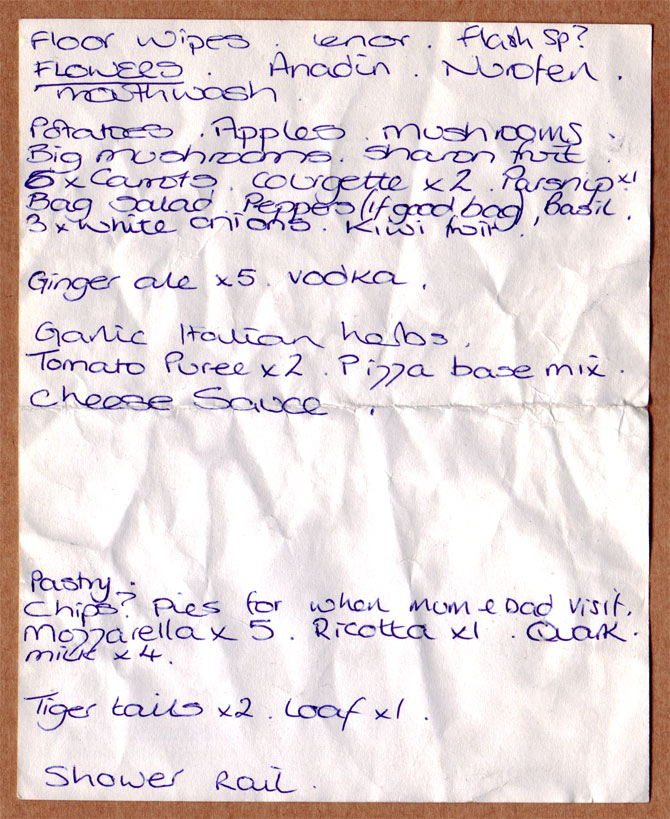 Floor Wipes . Lenor . Flash Sp?
FLOWERS . Anadin . Nurofen .
mouthwash .
Potatoes . Apples . mushrooms .
Big mushrooms . Sharon fruit .
6 x Carrots . Courgette x 2 . Parsnip x1
Bag Salad . Peppers (if good bag) , Basil .
3 x white onions . Kiwi fruit .
Ginger ale x5 . vodka .
Garlic Italian herbs .
Tomato Puree x 2 . Pizza base mix .
Cheese Sauce .
Pastry .
Chips? Pies for when mum & Dad visit .
Mozzarella x 5 . Ricotta x1 . Quark .
milk x 4 .
Tiger tails x2 . Loaf x1 .
Shower Rail .